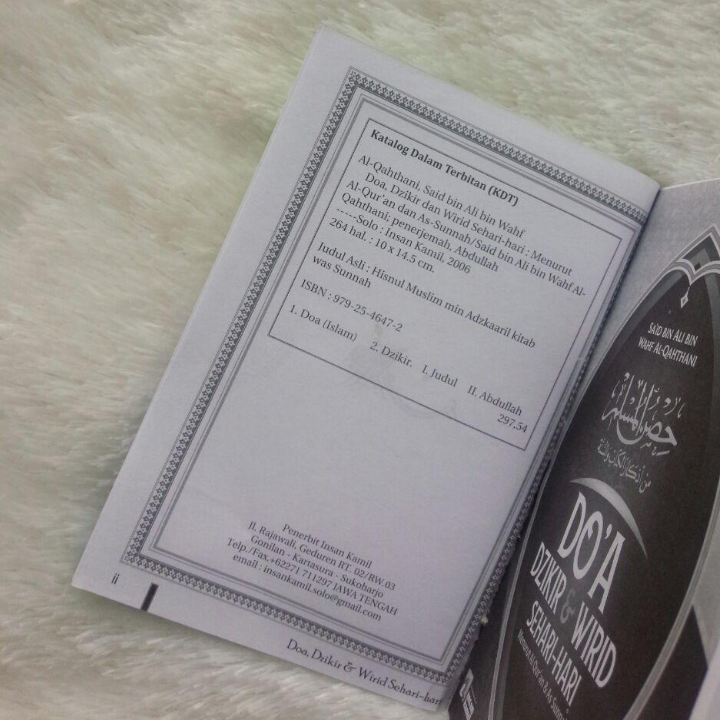 Katalog Dalam Terbitan (KDT)
Al-Qahthani, Said bin Ali bin Wahf
Doa, Dzikir dan Wirid Sehari-hari : Menurut
Al-Qur'an dan As-Sunnah/Said bin Ali bin Wahf Al-
Qahthani; penerjemah, Abdullah
-----Solo : Insan Kamil, 2006
264 hal. : 10 x 14.5 cm.
Judul Asli : Hisnul Muslim min Adzkaaril kitab
was Sunnah
ISBN : 979-25-4647-2
1. Doa (Islam) 2. Dzikir. I. Judul II. Abdullah
297.54
Penerbit Insan Kamil
Jl. Rajawali, Geduren RT. 02/RW.03
Gonilan - Kartasura - Sukoharjo
Telp./Fax.+62271 711297 JAWA TENGAH
email : insankamil.solo@gmail.com
ii
Doa, Dzikir & Wirid Sehari-hari
SA'ID BIN ALI BIN
WAHF AL-QAHTHANI
حصن المسلم
من أذكار الكتاب والسنة
DO'A
DZIKIR & WIRID
SEHARI-HARI